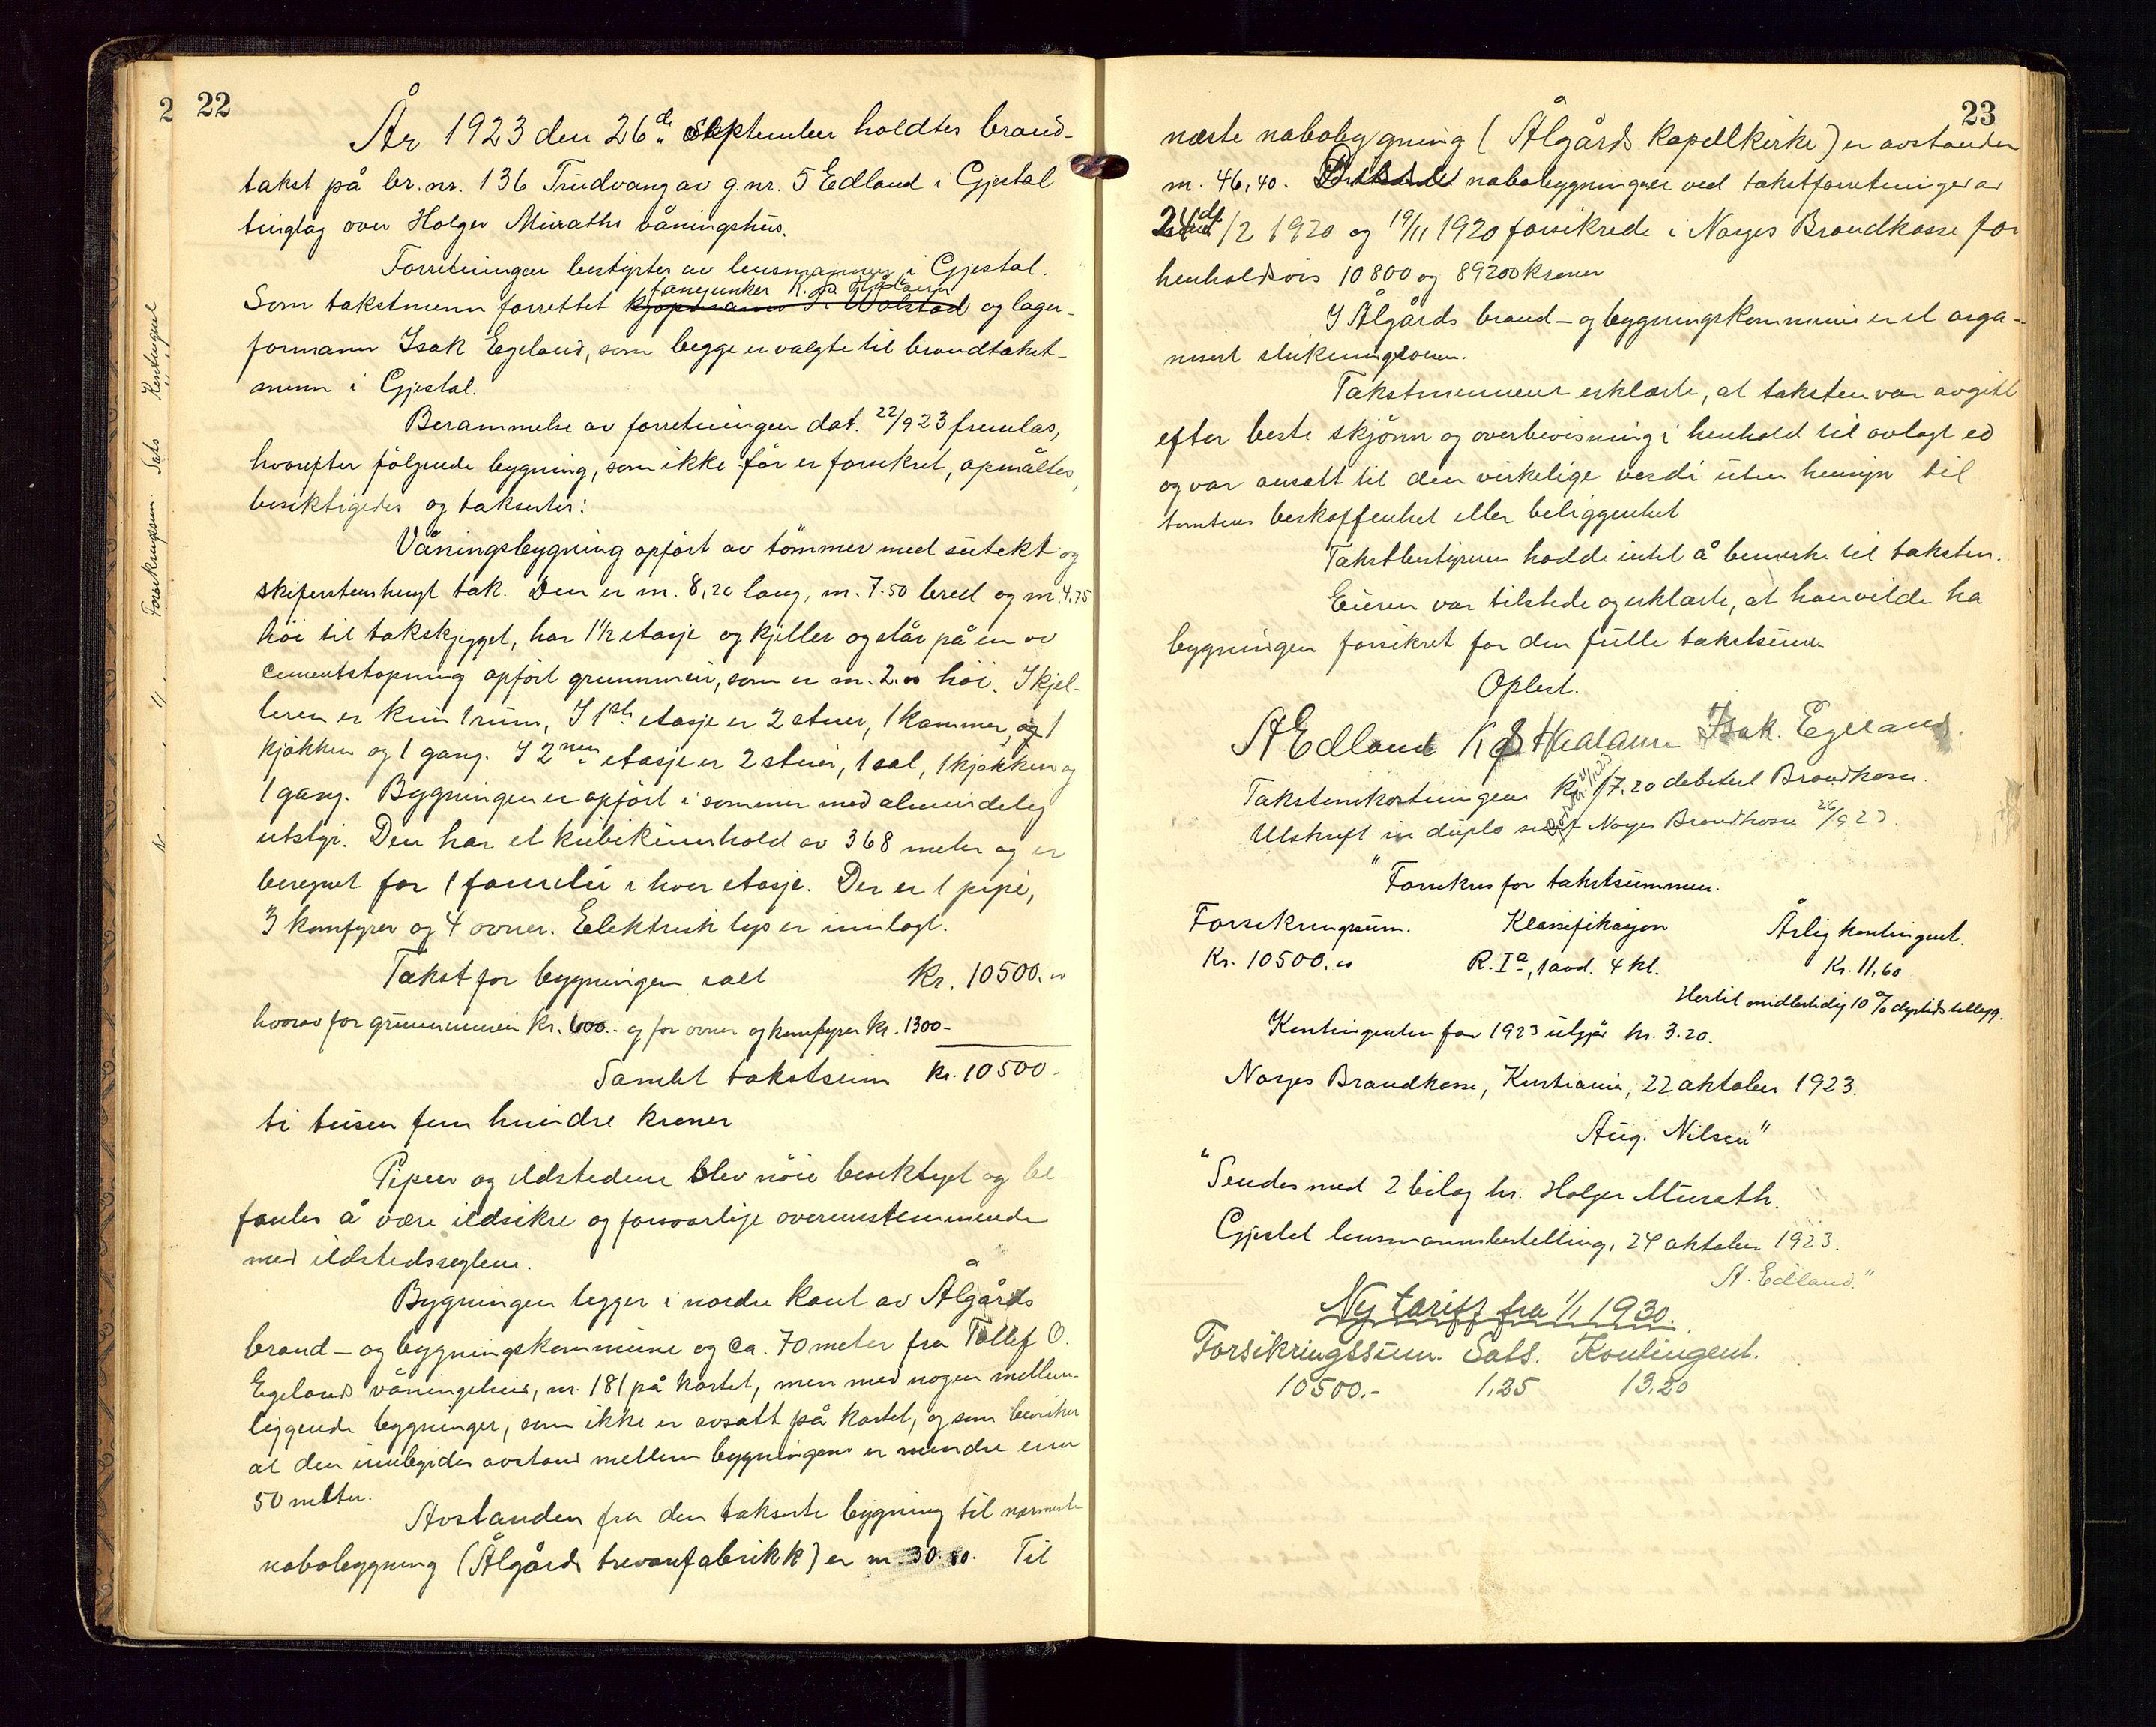 22
År 1923 den 26de september holdtes brand-
takst på br.nr. 136 Trudvang av g.nr. 5 Edland i Gjestal
tinglag over Holger Muraths våningshus.
Forretningen bestyrtes av lensmannen i Gjestal.
fanejunker K.
Som takstmenn forrettet kjøpmann Wolstad og lager-
formann Isak Egeland, som begge er valgte til brandtakst-
menn i Gjestal.
Berammelse av forretningen dat. 22/9 23 fremlas,
hvorefter følgende bygning, som ikke før er forsikret, opmåltes,
besiktigedes og taksertes:
Våningsbygning opført av tømmer med sutekt og
skiferstenshengt tak. Den er m. 8,20 lang, m. 7.50 bred og m. 4,75
høi til takskjegget, har 1 1/2 etasje og kjeller og står på en av
cementstøpning opført grunnmur, som er m. 2.00 høi. I kjel-
leren er kun 1 rum, I 1st etasje er 2 stuer, 1 kammer, og 1
kjøkken og 1 gang. I 2nen etasje er 2 stuer, 1 sal, 1 kjøkken og
1 gang. Bygningen er opført i sommer med almindelig
utstyr. Den har et kubikinnhold av 368 meter og er
beregnet for 1 familie i hver etasje. Der er 1 pipe,
3 komfyrer og 4 ovner. Elektrisk lys er innlagt.
Takst for bygningen ialt Kr. 10500.00
hvorav for grunnmuren kr. 600.- og for ovner og komfyrer kr. 1300-
Samlet takstsum kr. 10500-
ti tusen fem hundre kroner
Pipen og ildstedene blev nøie besiktiget og be-
fantes å være ildsikre og forsvarlige overensstemmende
med ildstedsreglene.
Bygningen ligger i nordre kant av Ålgårds
brand- og bygningskommune og ca. 70 meter fra Tollef O.
Egelands våningshus, nr. 181 på kartet, men med nogen mellem-
liggende bygninger, som ikke er avsatt på kartet, og som bevirker
at den innbyrdes avstand mellem bygningene er mindre enn
50 meter.
Avstanden fra den takserte bygning til nærmeste
nabobygning (Ålgårds trevarefabrikk) er m. 30.80. Til
23
næste nabobygning (Ålgårds kapellkirke) er avstanden
m. 46,40. nabobygninger ved takstforretninger av
24de/2 1920 og 19/11 1920 forsikrede i Norges Brandkasse for
henholdsvis 10800 og 89200 kroner
I Ålgårds brand- og bygningskommune er et orga-
nisert slukningsvesen.
Takstmennene erklærte, at taksten var avgitt
efter beste skjønn og overbevisning i henhold til avlagt ed
og var ansatt til den virkelige verdi uten hensyn til
tomtens beskaffenhet eller beliggenhet
Takstbestyreren hadde intet å bemerke til taksten.
Eieren var tilstede og erklærte, at han vilde ha
bygningen forsikret for den fulle takstsum.
Oplest.
A Edland Isak. Egeland.
Takstomkostningene kr. 17.20 debitert Brandkassen.
Utskrift in duplo sendt Norges Brandkasse 26/9 23.
"Forsikres for takstsummen.
Forsikringssum. Klassifikasjon Årlig kontingent.
Kr. 10500.00 R. Ia, 1 avd. 4 kl. Kr. 11,60
Hertil midlertidig 10% dyrtidstillegg.
Kontingenten for 1923 utgjør kr. 3.20.
Norges Brandkasse, Kristiania, 22 oktober 1923.
Aug. Nilsen"
"Sendes med 2 bilag hr. Holger Murath.
Gjestal lensmannsbestilling, 24 oktober 1923.
A. Edland."
Ny tariff fra 1/1 1930.
Forsikringssum. Sats. Kontingent.
10500.- 1,25 13.20
2
Forsikringssum. Sats Kontingent